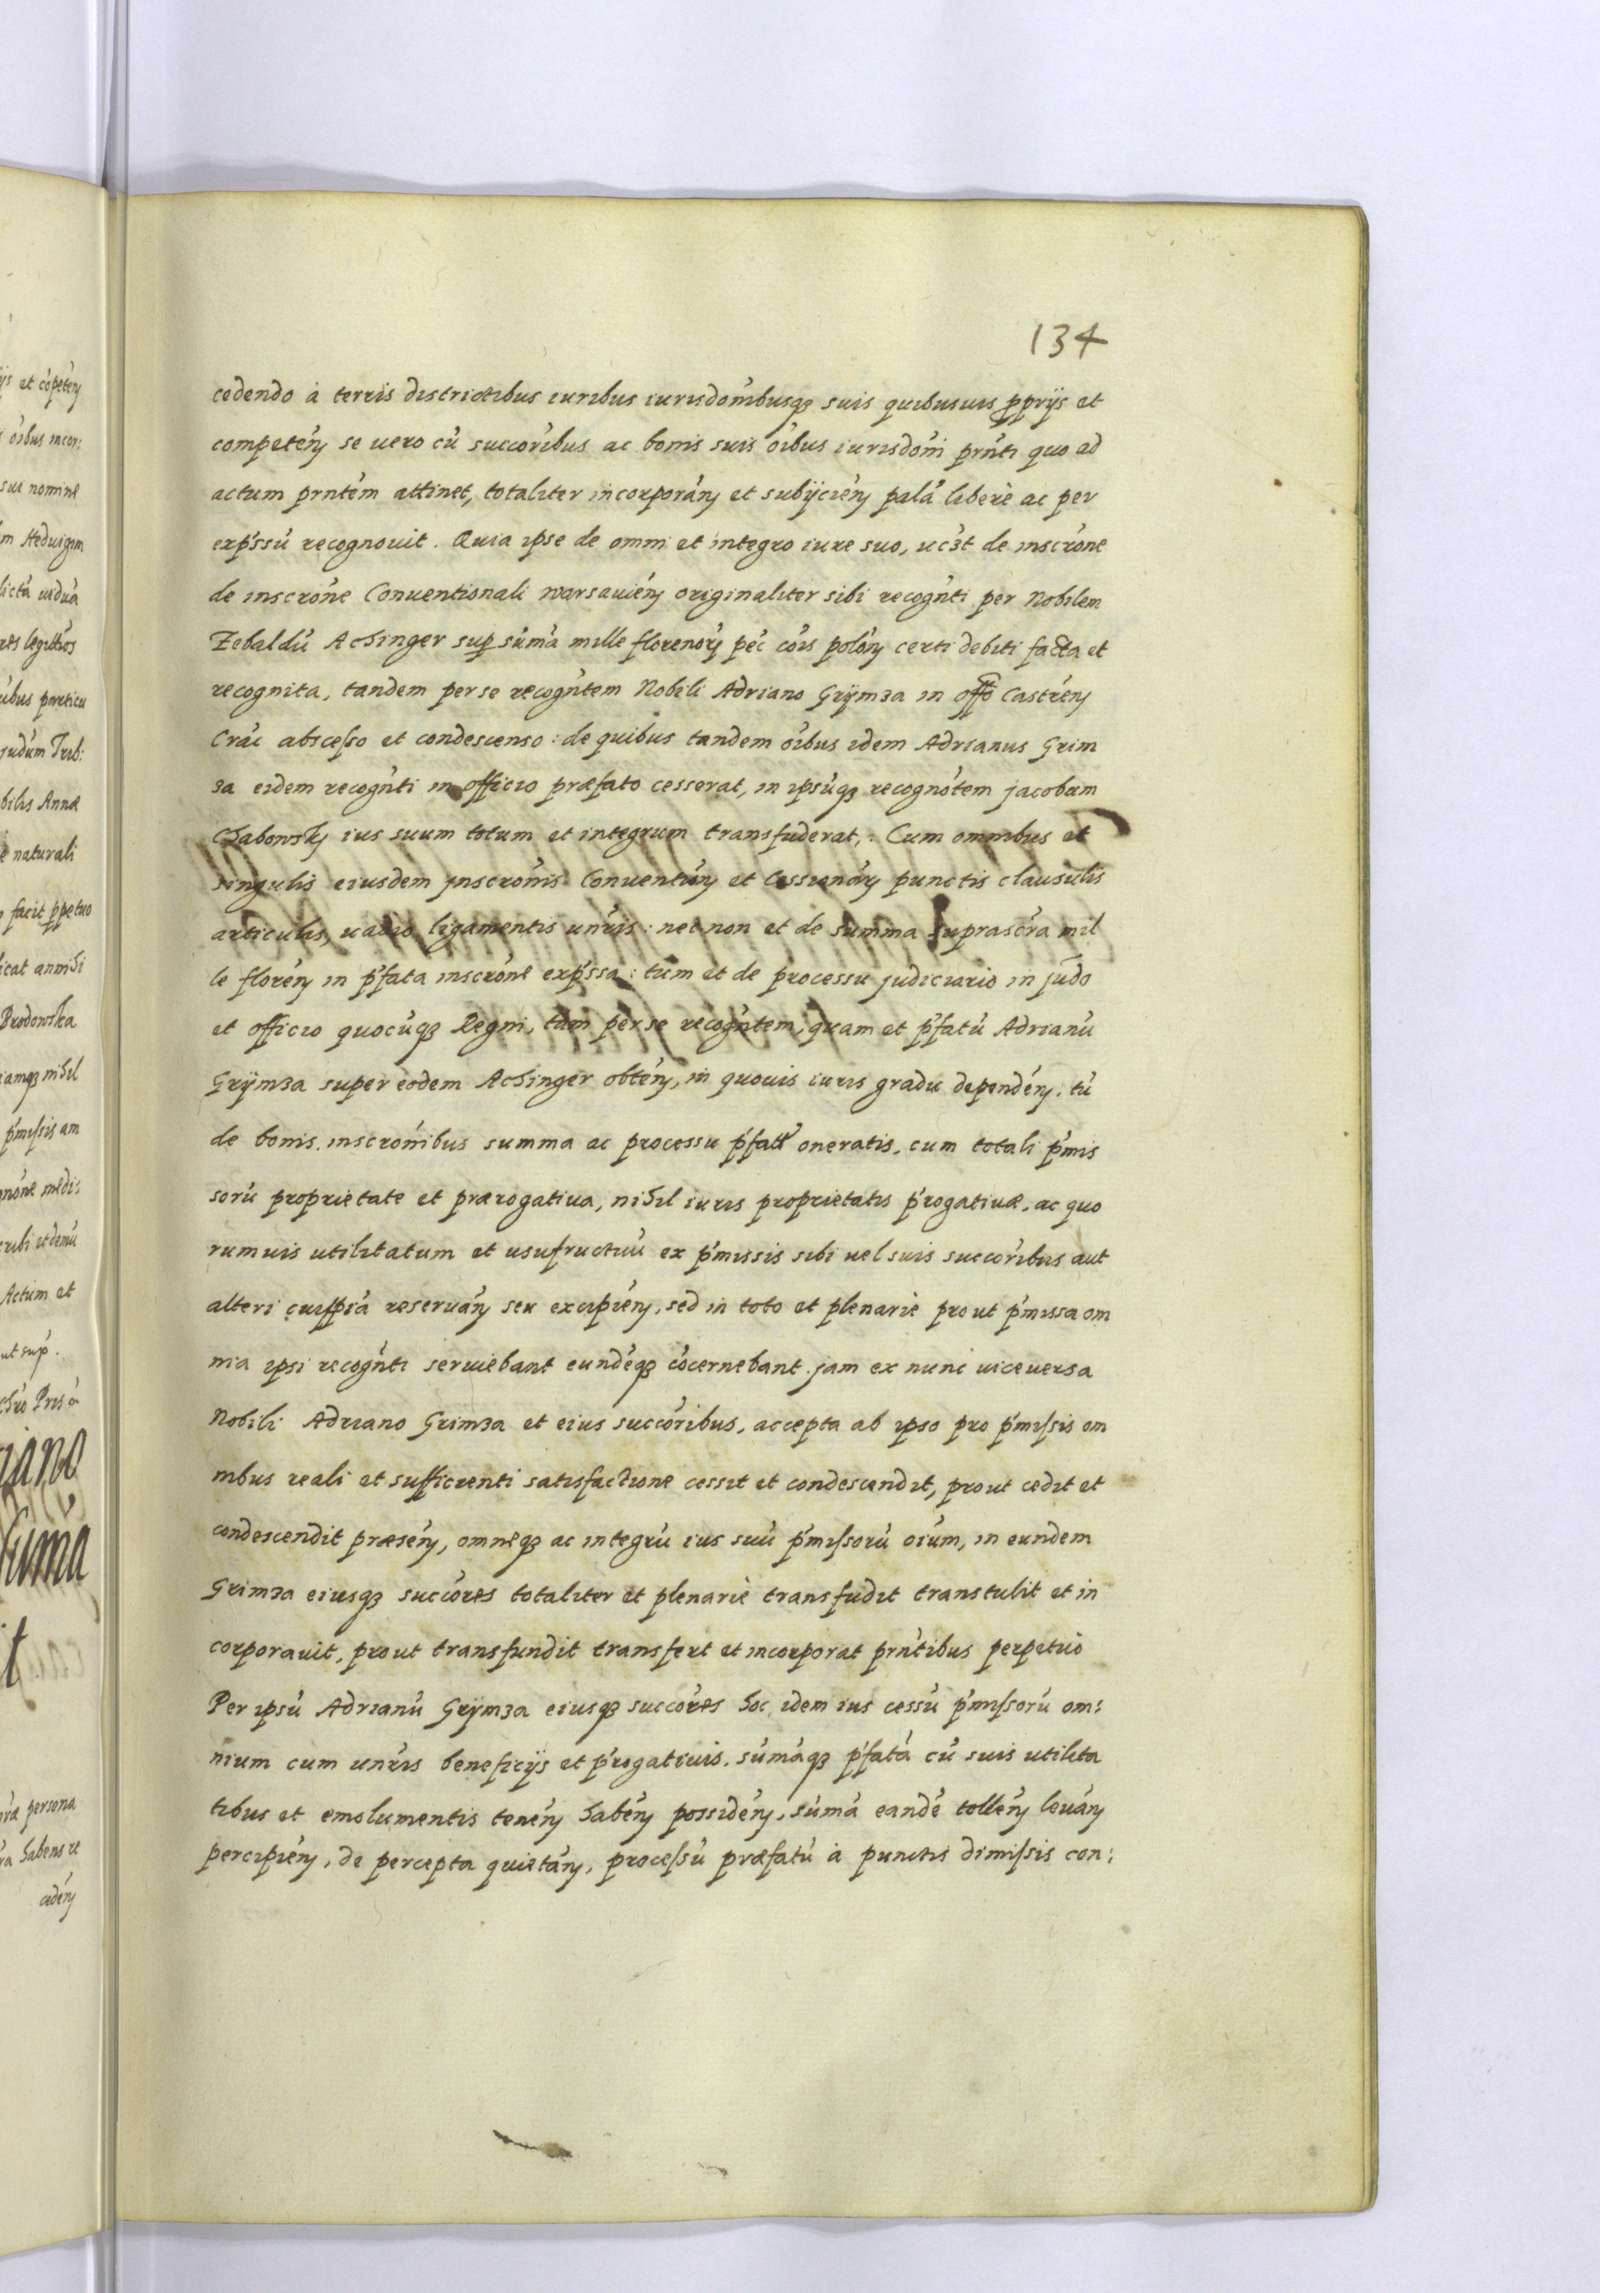 134
cedendo à terris districtibus iuribus iurisdoibusqȝ suis quibusuis pprijs et
competén se uero cū succoribus ac bonis suis oibus iurisdoni prnti quo ad
actum prntem attinet, totaliter incorporán et subijcién palā liberè ac per
expssū recognouit. Quia ipse de omni et integro iure suo, ucȝt de inscrone
de inscrone Conuentionali warsauién originaliter sibi recognti per Nobilem
Zebaldū Achinger sup sūma mille florenorȝ pec cois polón certi debiti facta et
recognita, tandem per se recogntem Nobili Adriano Grÿmȝa in offo Castrén
Crac abscesso et condescenso: de quibus tandem oibus idem Adrianus Grim
ȝa eidem recognti in officio præfato cesserat, in ipsūqȝ recognotem jacobum
Chabowskȳ ius suum totum et integrum transfuderat,: Cum omnibus et
singulis eiusdem jnscronis Conuentión et Cessionán punctis clausulis
articulis, uadio ligamentis unris: nec non et de summa suprascra mil
le florén in pfata inscrone expssa: tum et de processu judiciario in judo
et officio quocūqȝ Regni, tam per se recogntem, quam et pfatū Adrianū
Grÿmȝa super eodem Achinger obtén, in quouis iuris gradu dependén. tū
de bonis. inscronibus summa ac processu pfatt oneratis. cum totali pmis
sorū proprietate et prærogatiua, nihil iuris proprietatis progatiuæ, ac quo
rumuis utilitatum et usufructuū ex pmissis sibi uel suis succoribus aut
alteri cuipiā reseruán seu excipién, sed in toto et plenariè prout pmissa om
nia ipsi recognti seruiebant eundēqȝ cōcernebant. jam ex nunc uiceuersa
Nobili Adriano Grimȝa et eius succoribus, accepta ab ipso pro pmissis om
nibus reali et sufficienti satisfactione cessit et condescendit, prout cedit et
condescendit præsén, omneqȝ ac integrū ius suū pmissorū oium, in eundem
Grimȝa eiusqȝ succores totaliter et plenariè transfudit transtulit et in
corporauit, prout transfundit transfert et incorporat prntibus perpetuò
Per ipsū Adrianū Grÿmȝa eiusqȝ succores hoc idem ius cessū pmissorū om:
nium cum unris beneficijs et progatiuis. sūmāqȝ pfatā cū suis utilita
tibus et emolumentis tenén habén possidén, sūmā eandē tollén leuán
percipién, de percepta quietán, processū præfatū à punctis dimissis con: